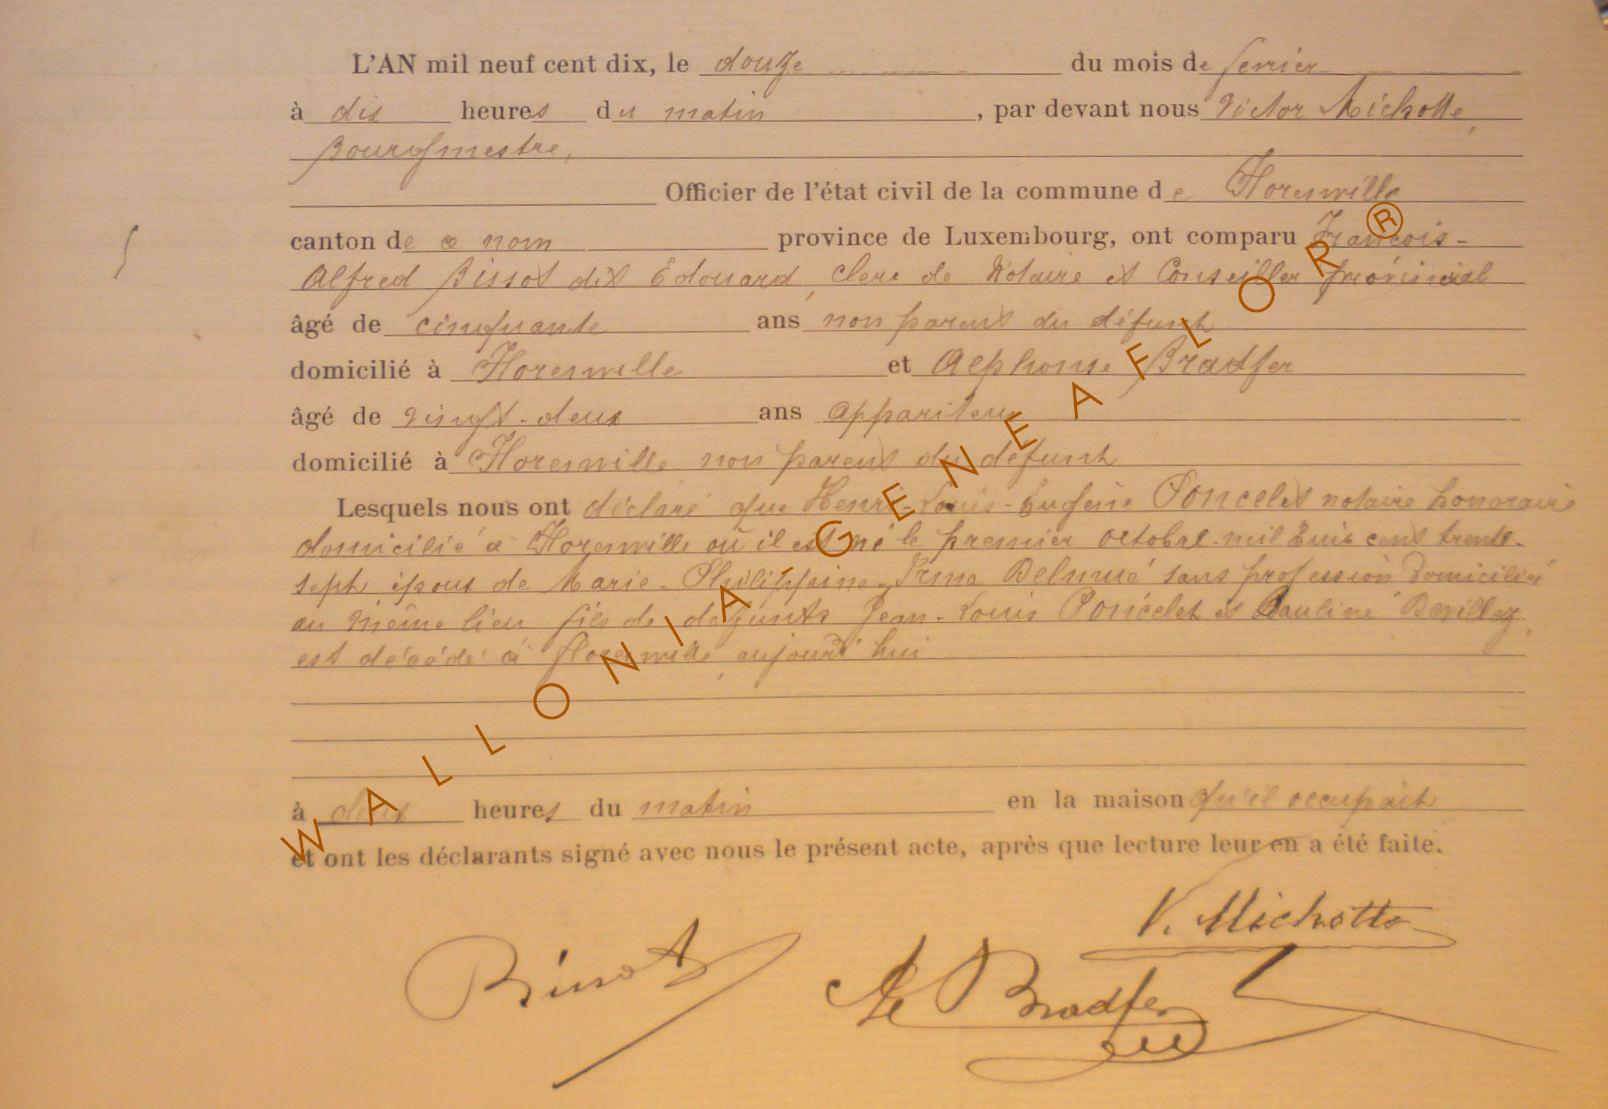 L'AN mil neuf cent dix, le douze du mois de fevrier
à dix heures du matin, par devant nous Victor Michotte,
Bourgmestre,
Officier de l'état civil de la commune de Florenville
canton de ce nom province de Luxembourg, ont comparu François-
Alfred Bissot dit Edouard, Clerc de Notaire et Conseiller provincial
âgé de cinquante ans non parent du défunt
domicilié à Florenville et Alphonse Bradfer
âgé de vingt-deux ans appariteur
domicilié à Florenville non parent du défunt
Lesquels nous ont déclaré que Henri-Louis-Eugène Poncelet notaire honoraire
domicilié à Florenville où il est né le premier octobre mil huit cent trente-
sept époux de Marie-Philippine-Irma sans profession domiciliée
au même lieu fils de défunts Jean-Louis Poncelet et Pauline Devillez,
est décédé à florenville, aujourd'hui
à deux heures du matin en la maison qu'il occupait
et ont les déclarants signé avec nous le présent acte, après que lecture leur en a été faite.
V. Michotte
Bissot
Al Bradfer
WALLONIA GENEAFLOR ®